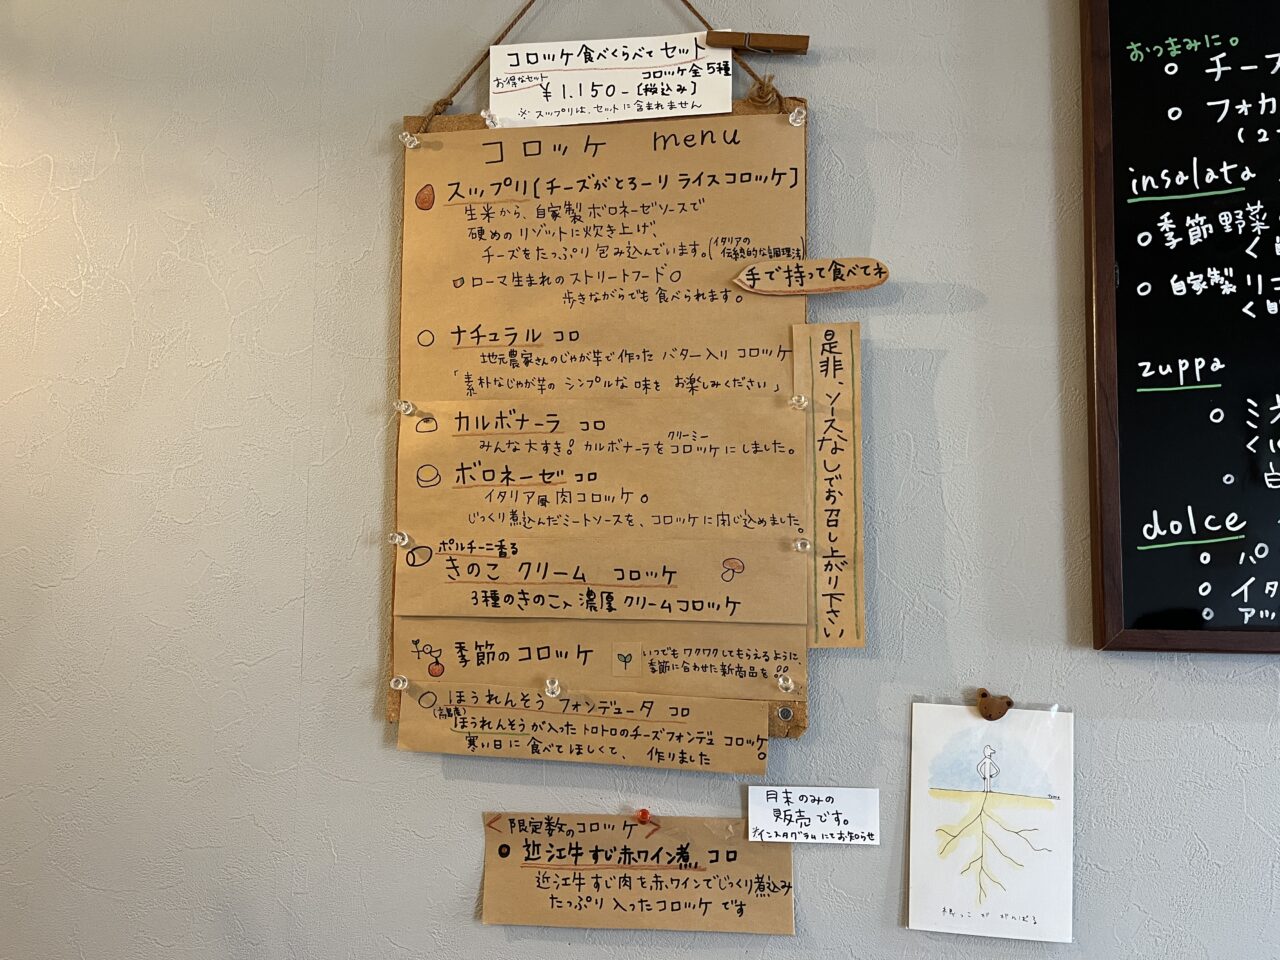 コロッケ食べくらべてセット
お得なセット
コロッケ全5種
¥1.150-[税込み]
※スップリは、セットに含まれません
コロッケ menu
スップリ[チーズがとろーりライスコロッケ]
生米から、自家製ボロネーゼソースで
硬めのリゾットに炊き上げ、
チーズをたっぷり包み込んでいます。(イタリアの伝統的な調理法)
ローマ生まれのストリートフード。
歩きながらでも食べられます。
手で持って食べてネ
ナチュラルコロ
地元農家さんのじゃが芋で作ったバター入りコロッケ
「素朴なじゃが芋のシンプルな味をお楽しみください」
カルボナーラコロ
クリーミー
みんな大すき!カルボナーラをコロッケにしました。
ボロネーゼコロ
イタリア風肉コロッケ。
じっくり煮込んだミートソースを、コロッケに閉じ込めました。
ポルチーニ香る
きのこクリーム コロッケ
3種のきのこ入 濃厚クリームコロッケ
季節のコロッケ
いつでもワクワクしてもらえるように、
季節に合わせた新商品を!!
ほうれんそうフォンデュータコロ
ほうれんそうが入ったトロトロのチーズフォンデュコロッケ
寒い日に食べてほしくて、作りました。
是非、ソースなしでお召し上がり下さい
<限定数のコロッケ>
近江牛すじ赤ワイン煮コロ
近江牛すじ肉を赤ワインでじっくり煮込み
たっぷり入ったコロッケです
月末のみの
販売です。
*インスタグラムにてお知らせ
おつまみに。
チーズ
フォカ
(2
insalata
季節野菜
自家製リコ
zuppa
ミネ
dolce
パ
イタ
アッ
根っこががんばる